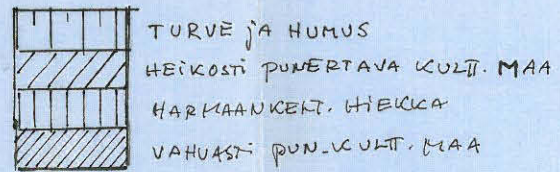 TURVE JA HUMUS
HEIKOSTI PUNERTAVA KULTT. MAA
HARMAANKELT. HIEKKA
VAHVASTI PUN. KULTT. MAA